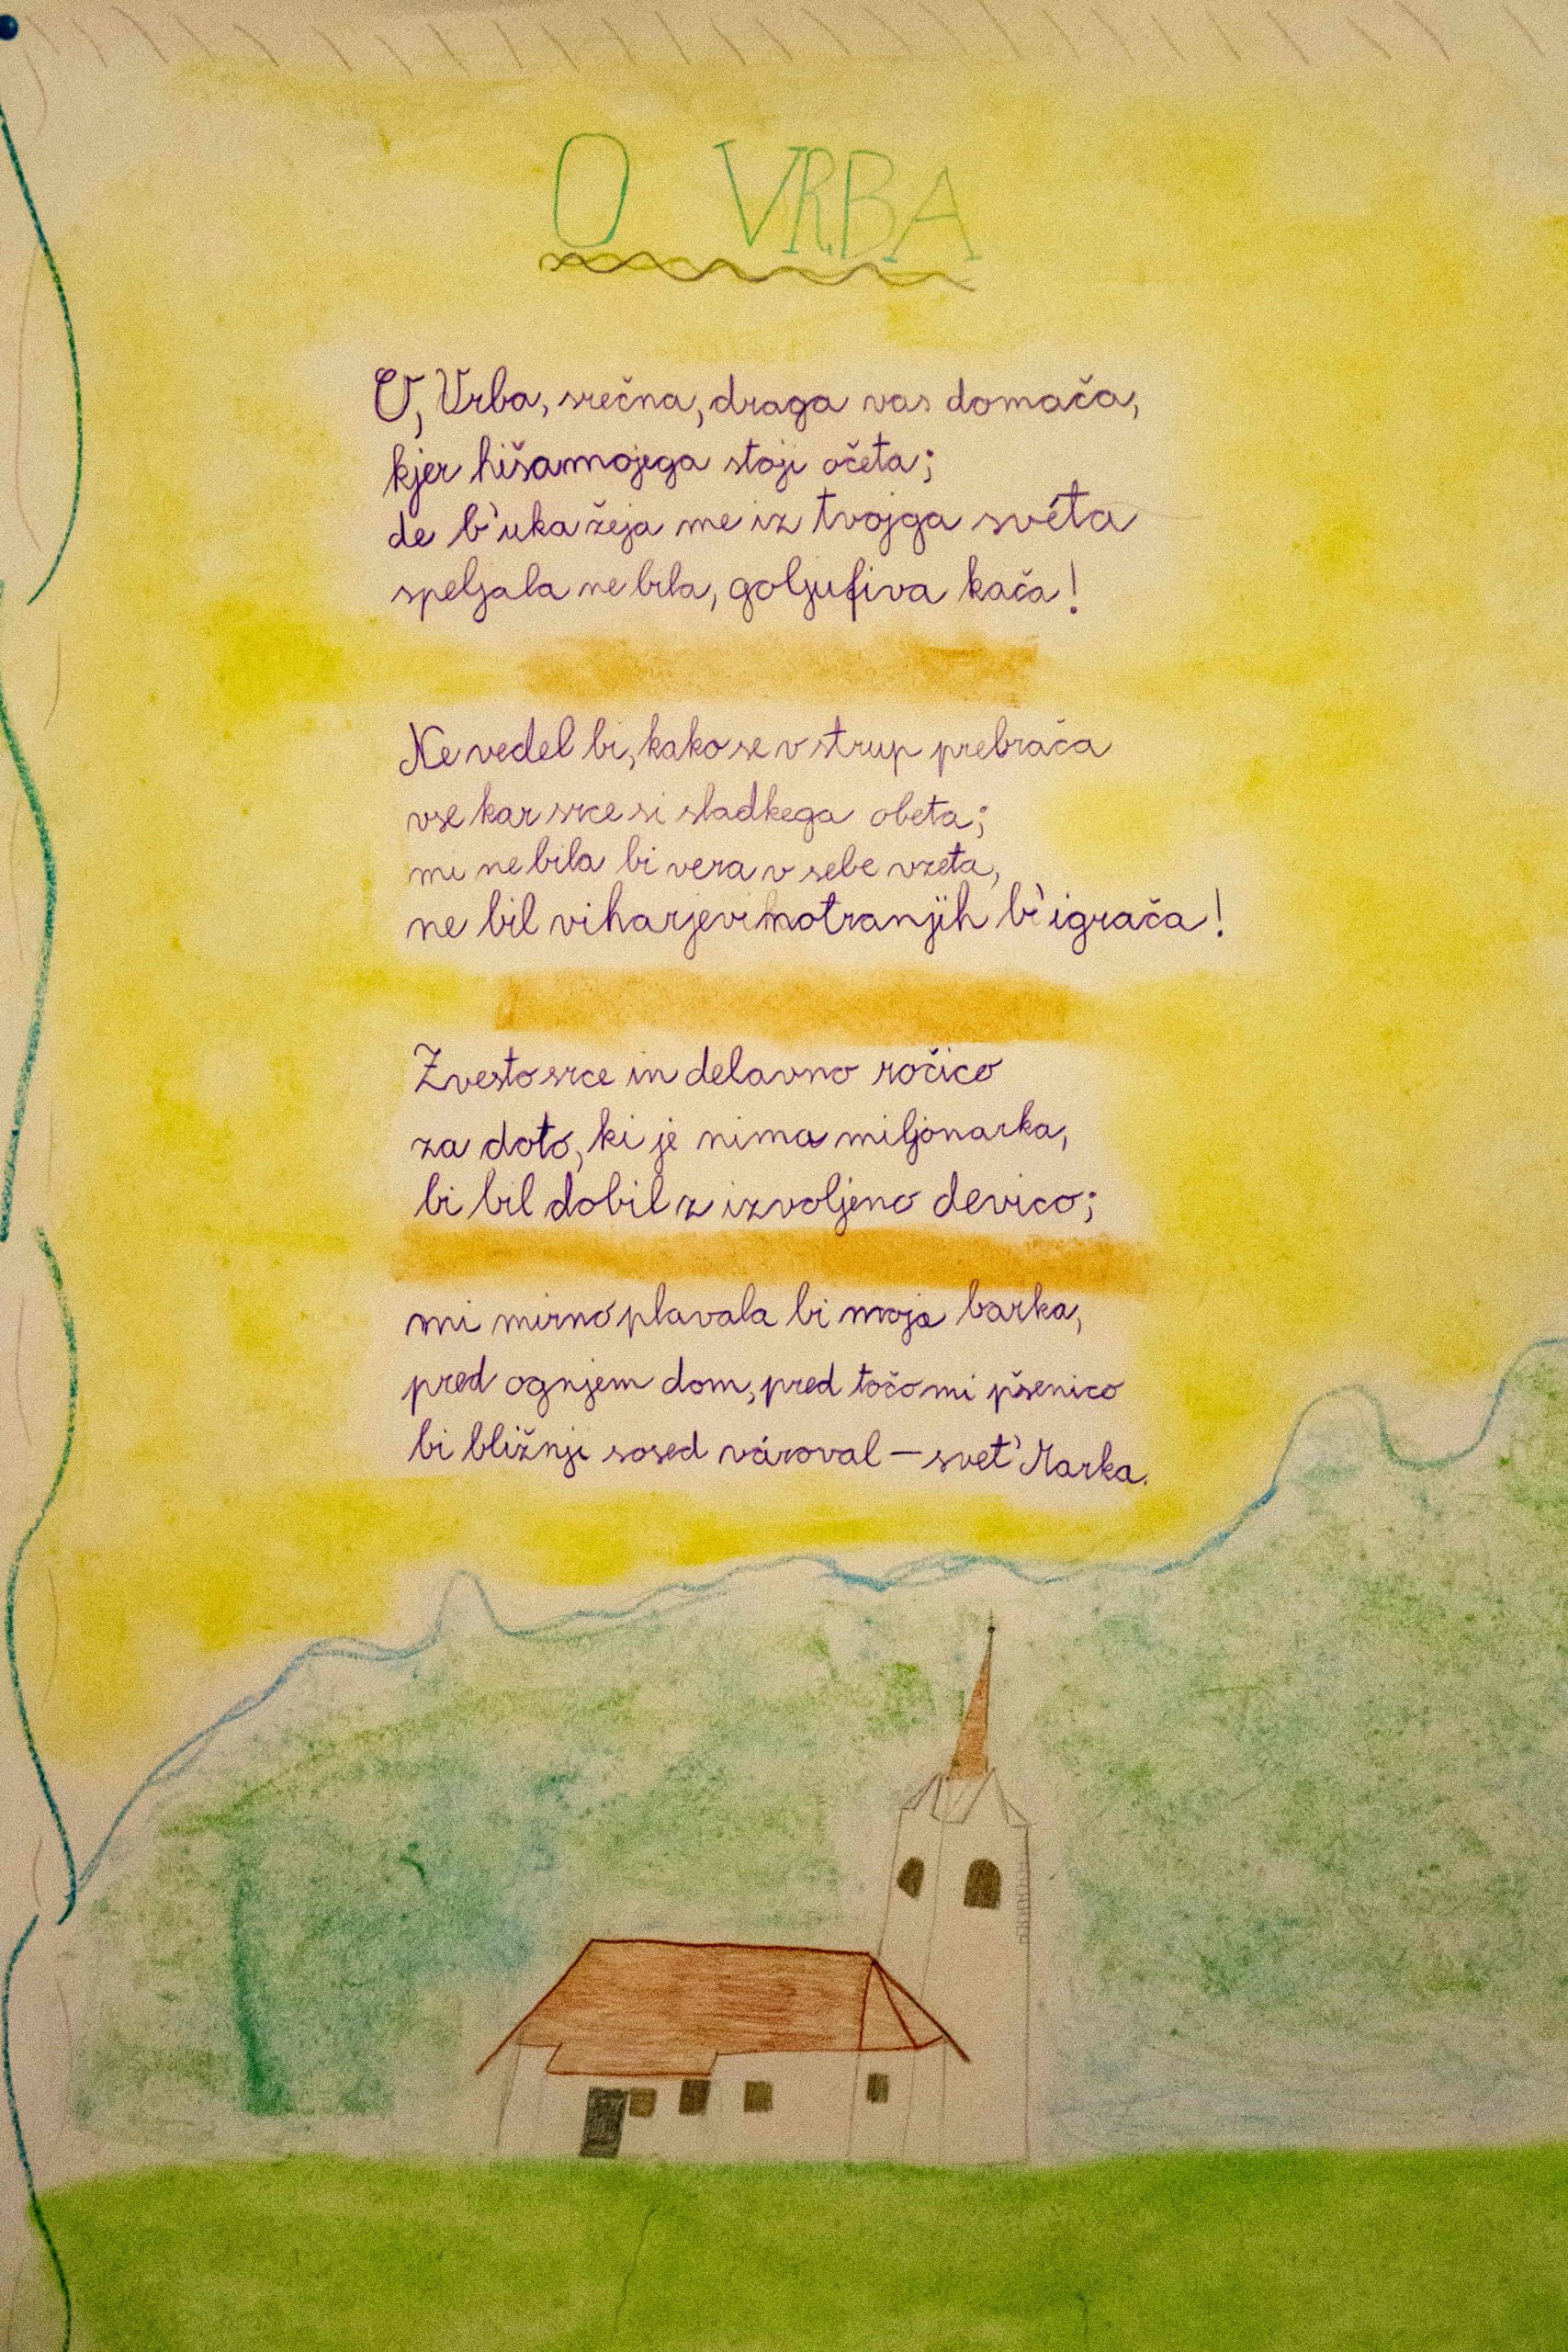 O VRBA
O, Vrba, srečna, draga vas domača,
kjer hiša mojega stoji očeta;
de b'uka žeja me iz tvojga svéta
speljala ne bila, goljufiva kača!
Ne vedel bi, kako se v strup prebrača
vse kar srce si sladkega obeta;
mi ne bila bi vera v sebe vzeta,
ne bil viharjev notranjih b'igrača!
Zvesto srce in delavno ročico
za doto, ki je nima miljonarka,
bi bil dobil z izvoljeno devico;
mi mirno plavala bi moja barka,
pred ognjem dom, pred točo mi pšenico
bi bližnji sosed vároval – svet' Marka.